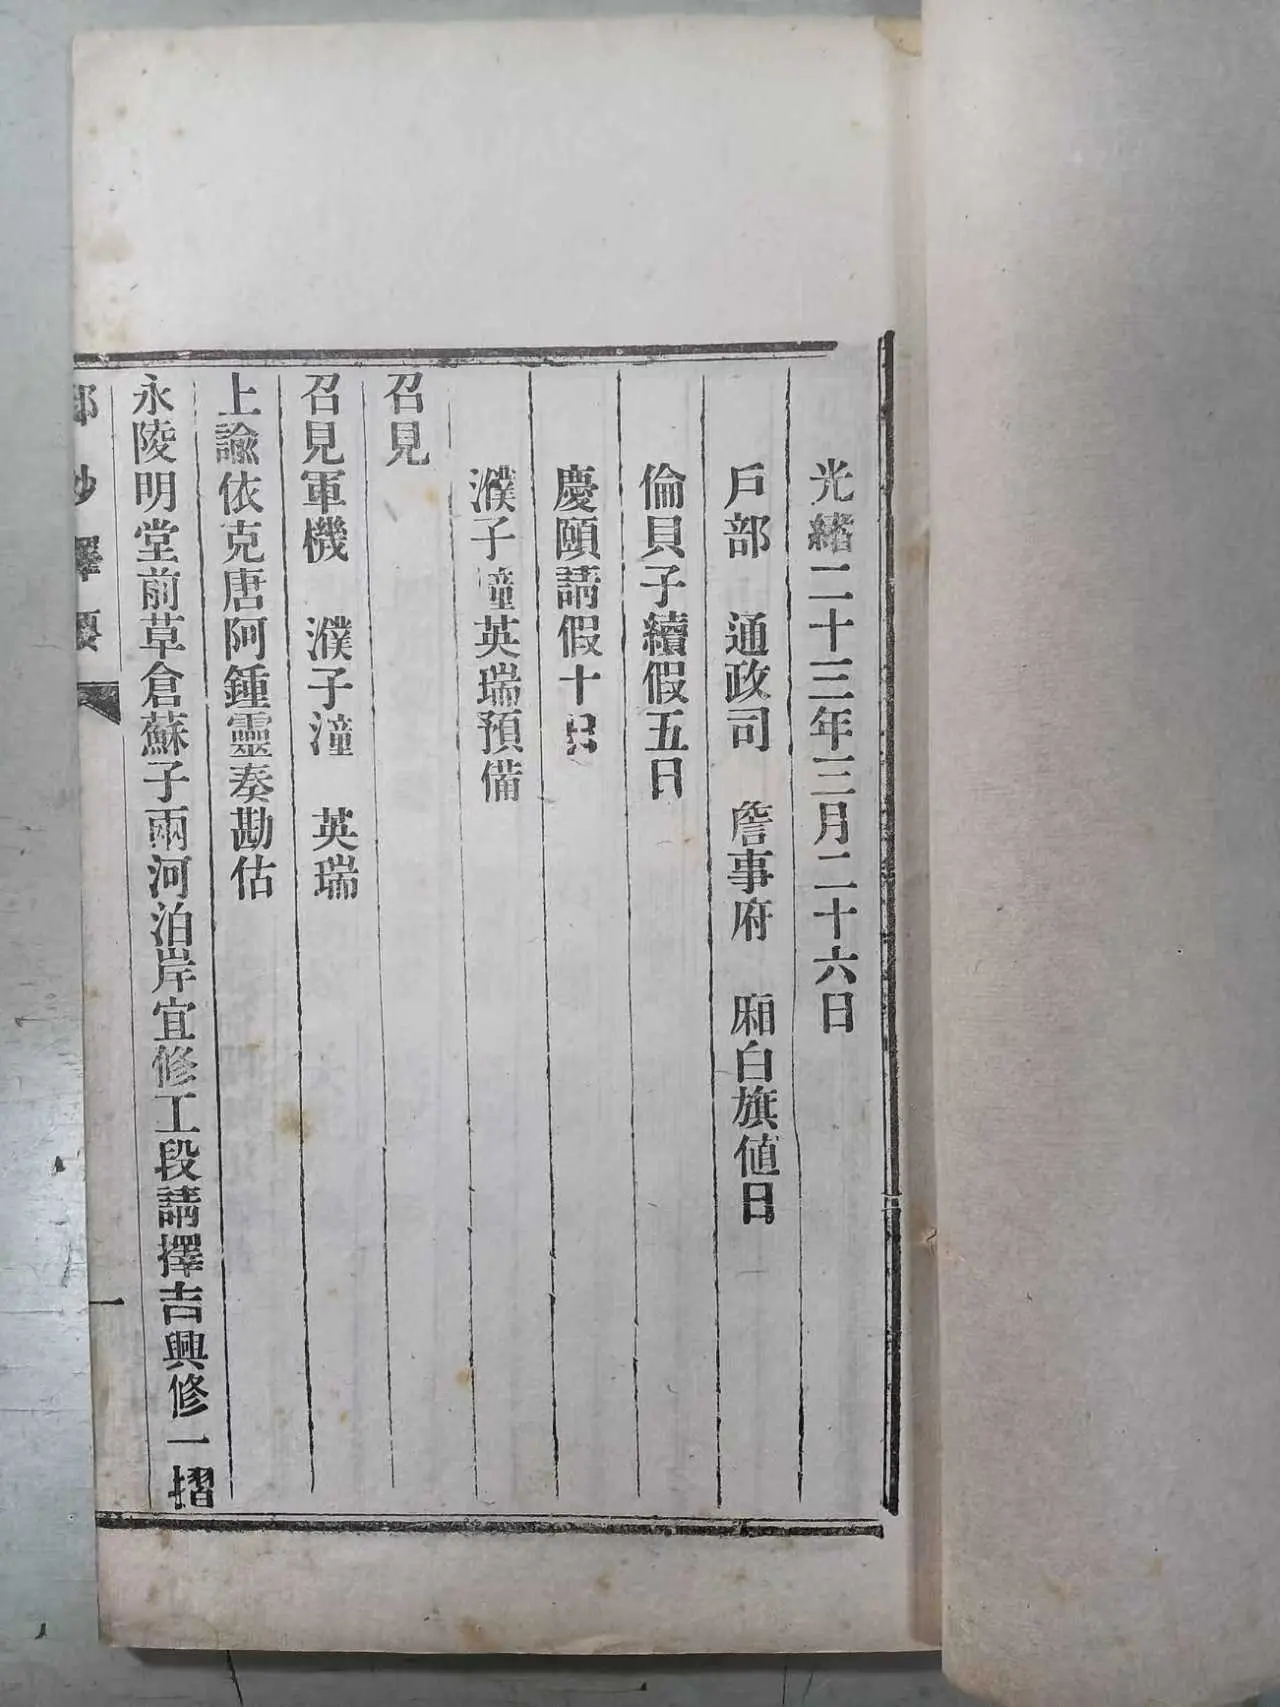 光緒二十三年三月二十六日
戶部 通政司 詹事府 廂白旗値日
倫貝子續假五日
慶頤請假十日
濮子潼英瑞預備
召見
召見軍機 濮子潼 英瑞
上諭依克唐阿鍾靈奏勘估
永陵明堂前草倉蘇子兩河泊岸宜修工段請擇吉興修一摺
邸抄擇要
一